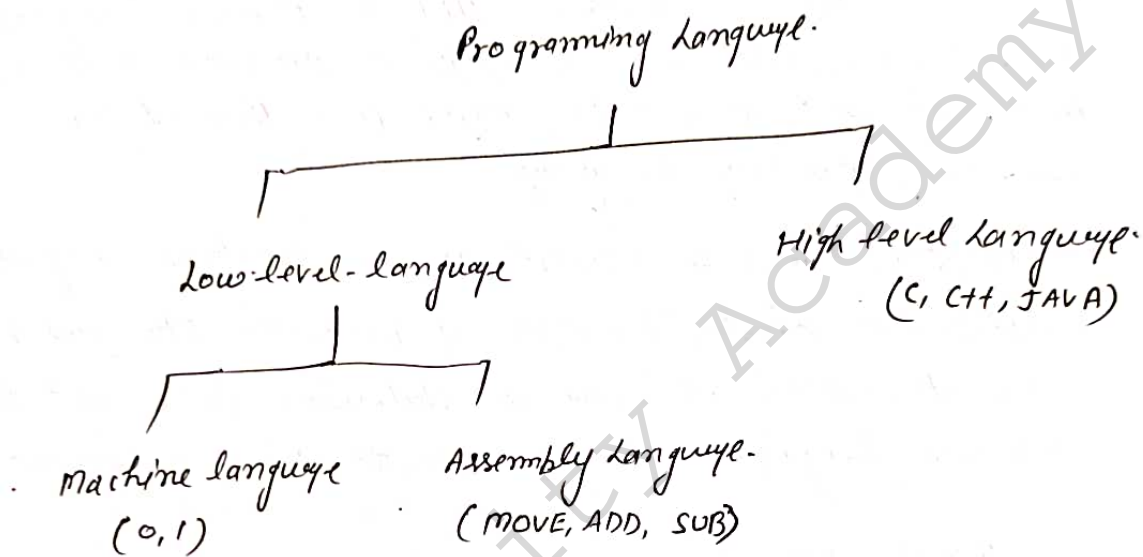 Programming Language.
Low-level-language
High level Language.
(C, C++, JAVA)
Machine language
(0,1)
Assembly Language.
(MOVE, ADD, SUB)
ty Academy